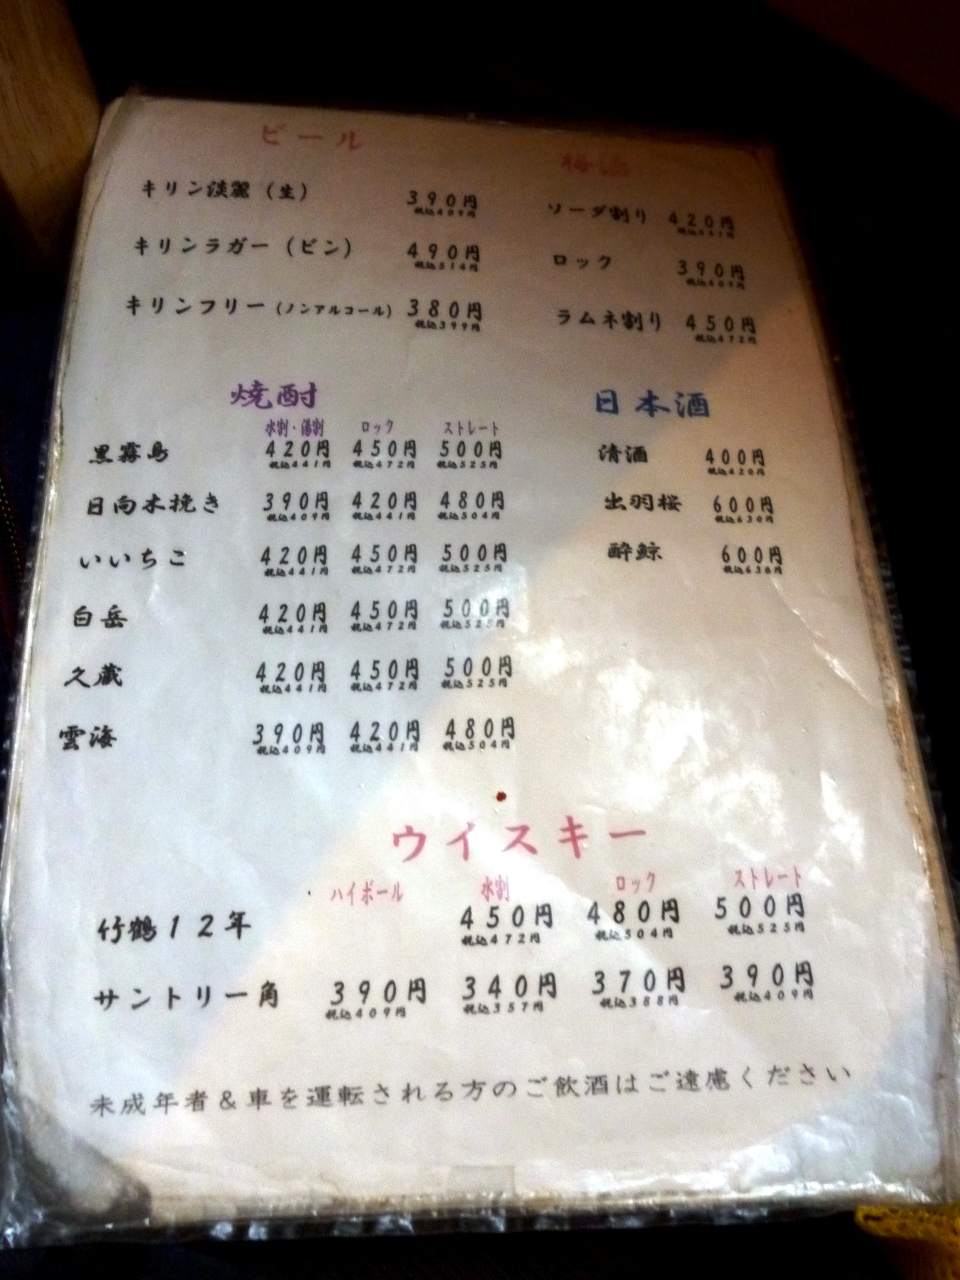 ビール
キリン淡麗（生） 390円
税込409円
キリンラガー（ビン） 490円
税込514円
キリンフリー（ノンアルコール） 380円
税込399円
梅酒
ソーダ割り 420円
税込441円
ロック 390円
税込409円
ラムネ割り 450円
税込472円
焼酎
水割・湯割 ロック ストレート
黒霧島 420円 450円 500円
税込441円 税込472円 税込525円
日向木挽き 390円 420円 480円
税込409円 税込441円 税込504円
いいちこ 420円 450円 500円
税込441円 税込472円 税込525円
白岳 420円 450円 500円
税込441円 税込472円 税込525円
久蔵 420円 450円 500円
税込441円 税込472円 税込525円
雲海 390円 420円 480円
税込409円 税込441円 税込504円
日本酒
清酒 400円
税込420円
出羽桜 600円
税込630円
酔鯨 600円
税込630円
ウイスキー
ハイボール 水割 ロック ストレート
竹鶴12年 450円 480円 500円
税込472円 税込504円 税込525円
サントリー角 390円 340円 370円 390円
税込409円 税込357円 税込388円 税込409円
未成年者＆車を運転される方のご飲酒はご遠慮ください